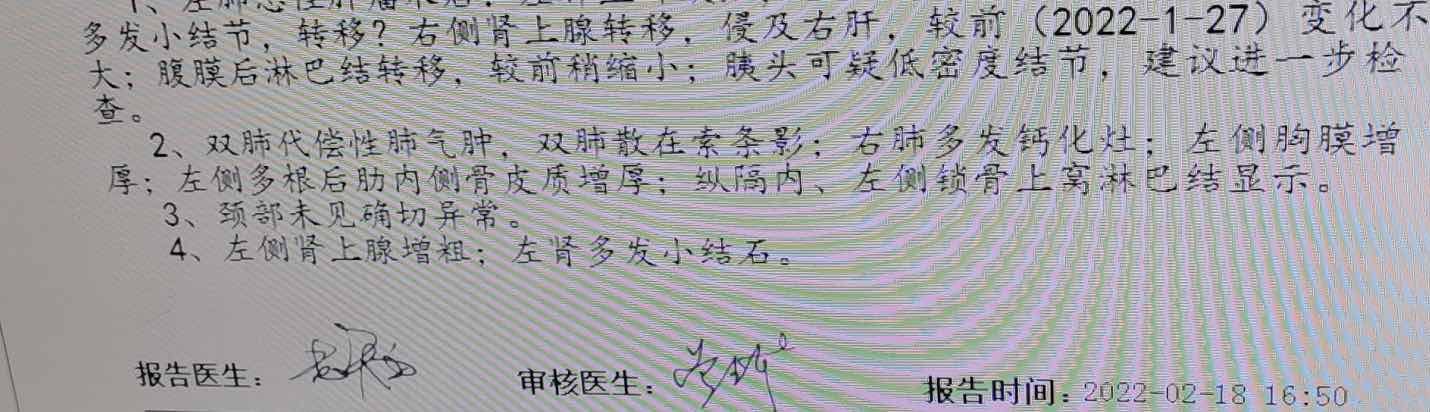 1、左肺恶性肿瘤术后
多发小结节，转移？右侧肾上腺转移，侵及右肝，较前（2022-1-27）变化不
大；腹膜后淋巴结转移，较前稍缩小；胰头可疑低密度结节，建议进一步检
查。
2、双肺代偿性肺气肿，双肺散在索条影；右肺多发钙化灶；左侧胸膜增
厚；左侧多根后肋内侧骨皮质增厚；纵隔内、左侧锁骨上窝淋巴结显示。
3、颈部未见确切异常。
4、左侧肾上腺增粗；左肾多发小结石。
报告医生： 审核医生： 报告时间：2022-02-18 16:50